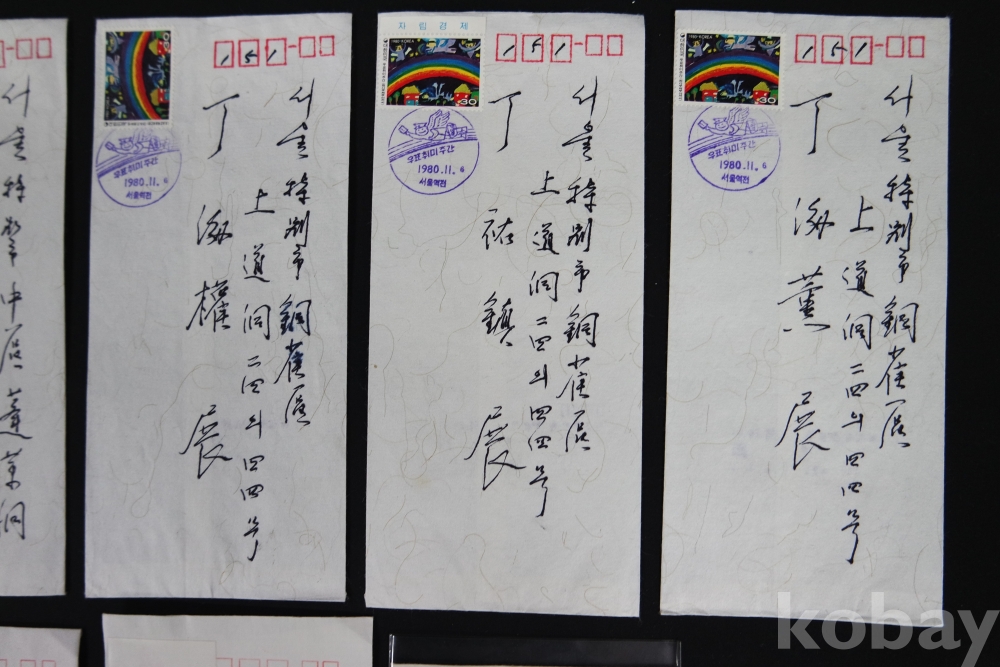 서울特別市中区蓬萊洞
151
우표취미주간
1980.11.6
서울역전
서울特別市銅雀區
上道洞二四의四四号
丁海權 展
자립경제
1980 KOREA
30
151
우표취미주간
1980.11.6
서울역전
서울特別市銅雀區
上道洞二四의四四号
丁祐鎭 展
30
151
우표취미주간
1980.11.6
서울역전
서울特別市銅雀區
上道洞二四의四四号
丁海薰 展
kobay